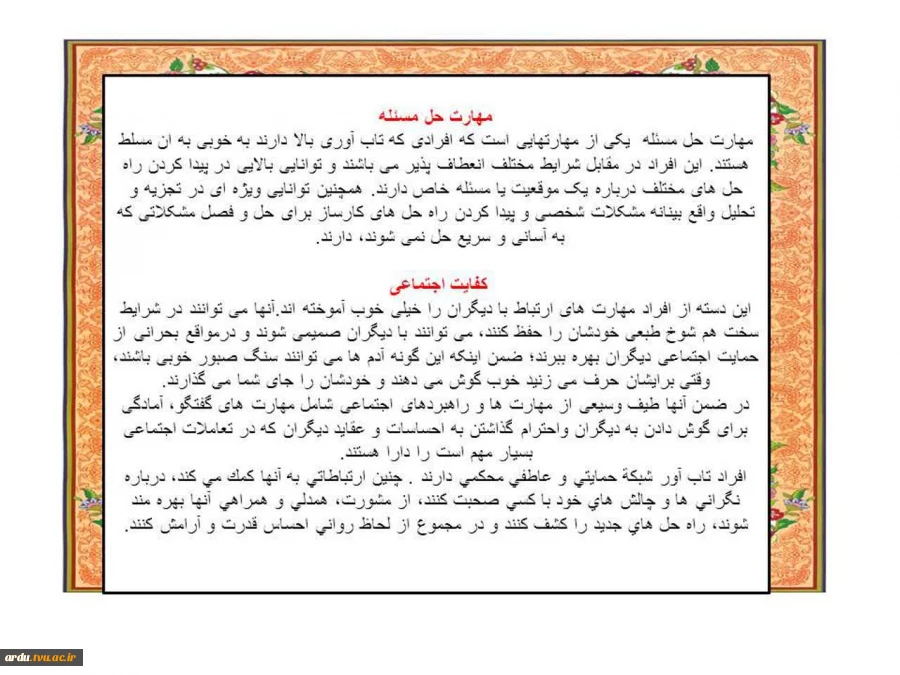 مهارت حل مسئله
مهارت حل مسئله یکی از مهارتهایی است که افرادی که تاب آوری بالا دارند به خوبی به ان مسلط
هستند. این افراد در مقابل شرایط مختلف انعطاف پذیر می باشند و توانایی بالایی در پیدا کردن راه
حل های مختلف درباره یک موقعیت یا مسئله خاص دارند. همچنین توانایی ویژه ای در تجزیه و
تحلیل واقع بینانه مشکلات شخصی و پیدا کردن راه حل های کارساز برای حل و فصل مشکلاتی که
به آسانی و سریع حل نمی شوند، دارند.
کفایت اجتماعی
این دسته از افراد مهارت های ارتباط با دیگران را خیلی خوب آموخته اند.آنها می توانند در شرایط
سخت هم شوخ طبعی خودشان را حفظ کنند، می توانند با دیگران صمیمی شوند و درمواقع بحرانی از
حمایت اجتماعی دیگران بهره ببرند؛ ضمن اینکه این گونه آدم ها می توانند سنگ صبور خوبی باشند،
وقتی برایشان حرف می زنید خوب گوش می دهند و خودشان را جای شما می گذارند.
در ضمن آنها طیف وسیعی از مهارت ها و راهبردهای اجتماعی شامل مهارت های گفتگو، آمادگی
برای گوش دادن به دیگران واحترام گذاشتن به احساسات و عقاید دیگران که در تعاملات اجتماعی
بسیار مهم است را دارا هستند.
افراد تاب آور شبكة حمايتي و عاطفي محكمي دارند . چنين ارتباطاتي به آنها كمك مي كند، درباره
نگراني ها و چالش هاي خود با كسي صحبت كنند، از مشورت، همدلي و همراهي آنها بهره مند
شوند، راه حل هاي جديد را كشف كنند و در مجموع از لحاظ رواني احساس قدرت و آرامش كنند.
ardu.tvu.ac.ir